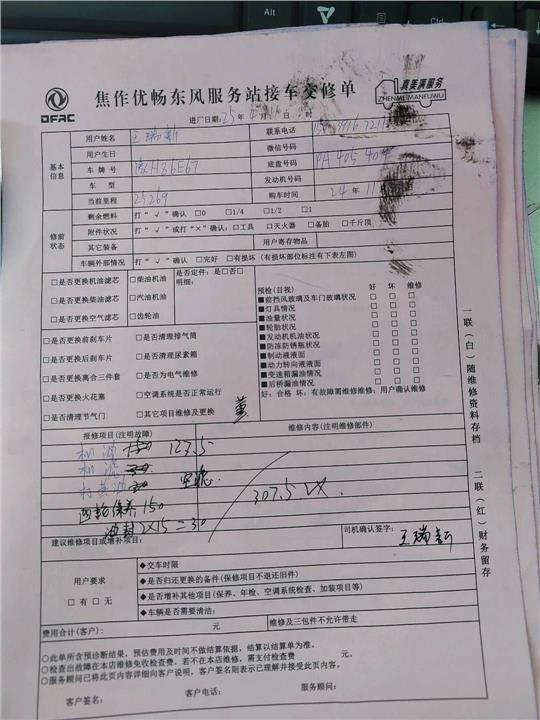 Alt
Ctrl
DFAC
焦作优畅东风服务站接车交修单
真美满服务
ZHENMEIMANFUWU
进厂日期: 25年 月 日 时
基本信息
用户姓名 王瑞新 联系电话
用户生日 微信号码
车牌号 H36E67 底盘号码 PA405404
车型 发动机号码
当前里程 25269 购车时间 24年11
修前状态
剩余燃料 打“√”确认 □0 □1/4 □1/2 □1
附件状况 打“√”或打“×”确认:□工具 □灭火器 □备胎 □千斤顶
其它装备 用户寄存物品
车辆外部情况 打“√”确认 □完好 □有损坏 (有损坏部位标注有下表左图)
□是否更换机油滤芯 □柴油机油 是否定件: 是□否□
□是否更换柴油滤芯 □汽油机油 明细:
□是否更换空气滤芯 □齿轮油
□是否更换前刹车片 □是否清理排气筒
□是否更换后刹车片 □是否清理尿素箱
□是否更换离合三件套 □是否为电气维修
□是否更换火花塞 □空调系统是否正常运行
□是否清理节气门 □其它项目维修及更换
预检(目视) 好 坏 维修
■前挡风玻璃及车门玻璃状况 □ □ □
■灯具情况 □ □ □
■油量状况 □ □ □
■轮胎状况 □ □ □
■发动机机油状况 □ □ □
■防冻防锈瓶状况 □ □ □
■制动液液面 □ □ □
■动力转向液液面 □ □ □
■变速箱漏油情况 □ □ □
■后桥漏油情况 □ □ □
好: 合格 坏: 有故障需维修维修: 用户确认维修
报修项目(注明故障) 维修内容(注明维修部件)
机油 150 127.5
机滤
打黄油
四轮保养 150
油封 2×15=30
307.5
建议维修项目或增补项目: 司机确认签字: 王瑞新
用户要求
□有 □无
◆交车时限
◆是否归还更换的备件(保修项目不退还旧件)
◆是否增补其他项目(保养、年检、空调系统检查、加装项目等)
◆车辆是否需要清洁:
费用合计(客户): 元 维修及三包件不允许带走
○此单所含预诊断结果, 预估费用及时间不做结算依据, 结算以结算单为准。
○检查出故障在本店维修免收检查费, 若不在本店维修, 需支付检查费 元。
○服务顾问已将此页内容详细向客户说明, 客户签名则表示已理解并接受此页内容。
客户签名: 客户电话: 服务顾问:
一联(白)随维修资料存档
二联(红)财务留存